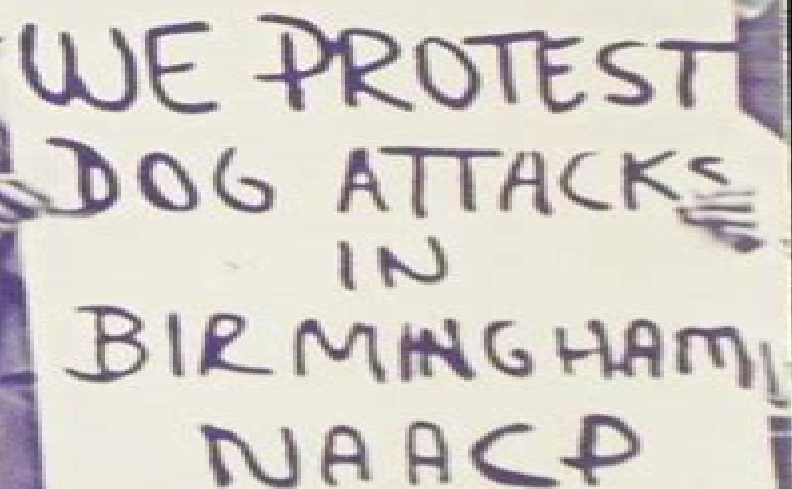 WE PROTEST
DOG ATTACKS
IN
BIRMINGHAM
NAACP